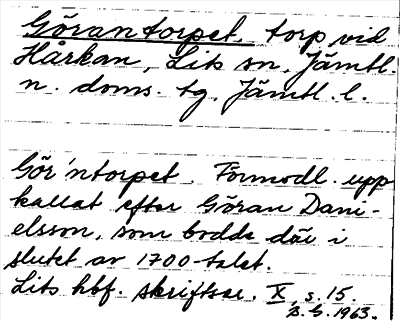 Görantorpet, torp vid
Hårkan, Lits sn, Jämtl.
n. doms. tg, Jämtl. l.
Gör'ntorpet. Förmodl. upp
kallat efter Göran Dani-
elsson, som bodde där i
slutet av 1700-talet.
Lits hbf. skriftser. X, s. 15.
1963.